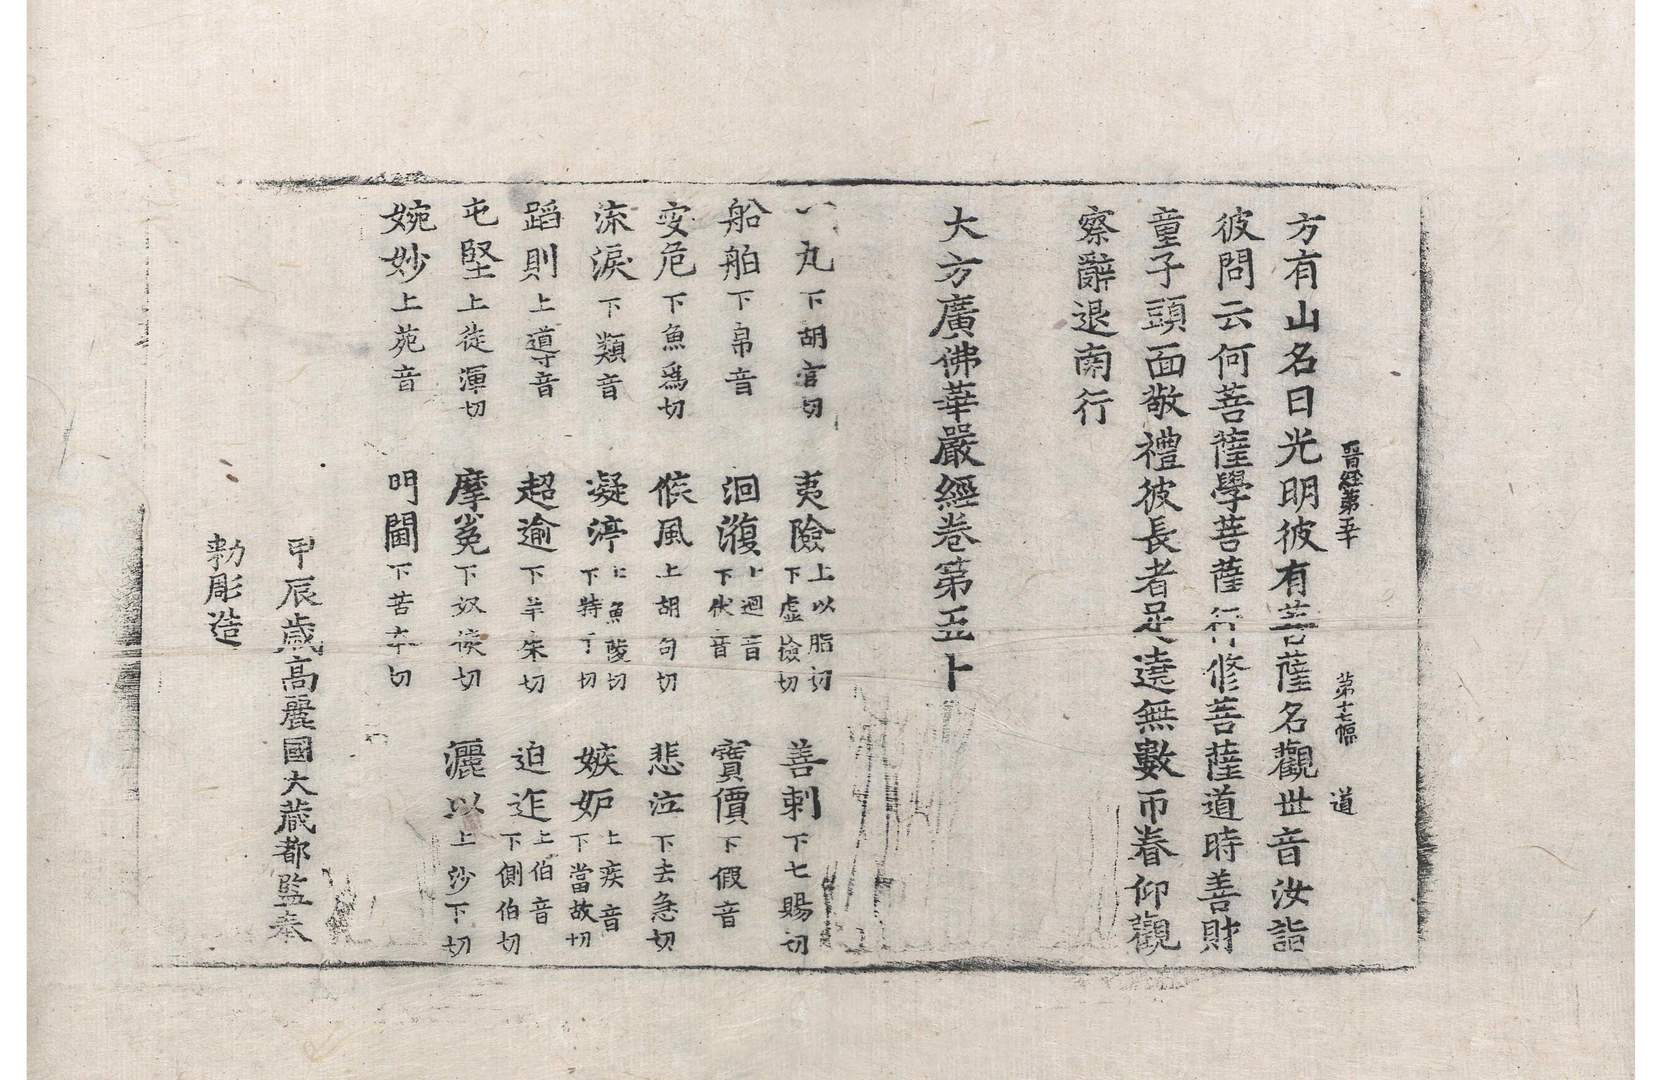 晉經第五十 第十七幅 道
方有山名曰光明彼有菩薩名觀世音汝詣
彼問云何菩薩學菩薩行修菩薩道時善財
童子頭面敬禮彼長者足遶無數帀眷仰觀
察辭退南行
大方廣佛華嚴經卷第五十
丸下胡官切 夷險上以脂切下虛撿切 善刺下七賜切
船舶下帛音 洄澓上迴音下伏音 寶價下假音
安危下魚爲切 候風上胡句切 悲泣下去急切
流淚下類音 凝渟上魚陵切下特丁切 嫉妒上疾音下當故切
蹈則上導音 超逾下羊朱切 迫迮上伯音下側伯切
屯堅上徒渾切 摩㝹下奴侯切 灑以上沙下切
婉妙上苑音 門閫下苦本切
甲辰歲高麗國大藏都監奉
勅彫造